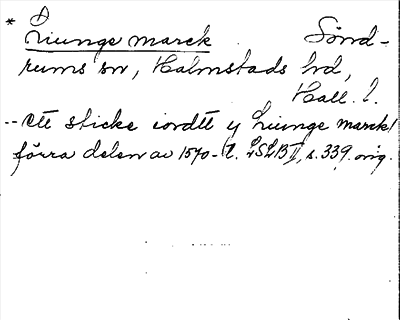 * Liunge marck Sönd-
rums sn, Halmstads hd,
Hall. l.
-- ett sticke iordtt y Liunge marck/
förra delen av 1570-t. LSLB II, s. 339. orig.